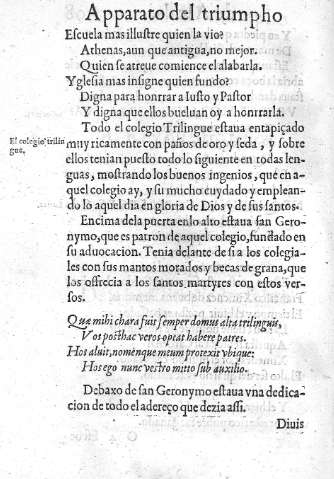 Apparato del triumpho
Escuela mas illustre quien la vio?
Athenas, aun que antigua, no mejor.
Quien se atreue comience el alabarla.
Yglesia mas insigne quien fundo?
Digna para honrrar a Iusto y Pastor
Y digna que ellos bueluan oy a honrrarla.
Todo el colegio Trilingue estaua entapiçado
El colegio trilin
gue.
muy ricamente con paños de oro y seda, y sobre
ellos tenian puesto todo lo siguiente en todas len
guas, mostrando los buenos ingenios, que en a
quel colegio ay, y su mucho cuydado y emplean
do lo aquel dia en gloria de Dios y de sus santos.
Encima dela puerta enlo alto estaua san Gero
nymo, que es patron de aquel colegio, fundado en
su aduocacion. Tenia delante de si a los colegia
les con sus mantos morados y becas de grana, que
los offrecia a los santos martyres con estos ver
sos.
Quæ mihi chara fuit semper domus alta trilinguis,
Vos posthac veros optat habere patres.
Hos aluit, nomenque meum protexit vbique:
Hos ego nunc vestro mitto sub auxilio.
Debaxo de san Geronymo estaua vna dedica
cion de todo el adereço que dezia assi.
Diuis